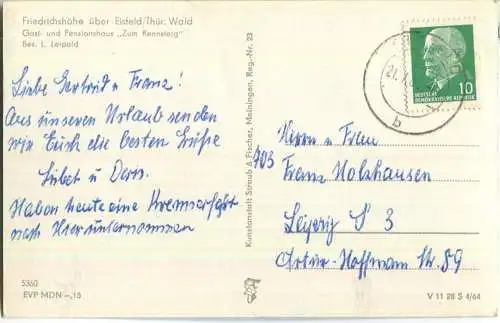 Friedrichshöhe über Eisfeld/Thür. Wald
Gast- und Pensionshaus „Zum Rennsteig"
Bes. L. Leipold
Liebe Gertrud u. Franz!
Aus unseren Urlaub senden
wir Euch die besten Grüße
u. Doris.
Haben heute eine Kremserfahrt
nach Hier unternommen
5360
EVP MDN –,15
Kunstanstalt Straub & Fischer, Meiningen, Reg.-Nr. 23
21.
b
DEUTSCHE
DEMOKRATISCHE REPUBLIK
10
Herrn u. Frau
703 Franz Holzhausen
Leipzig S 3
Artur-Hoffmann Str. 89
V 11 28 S 4/64